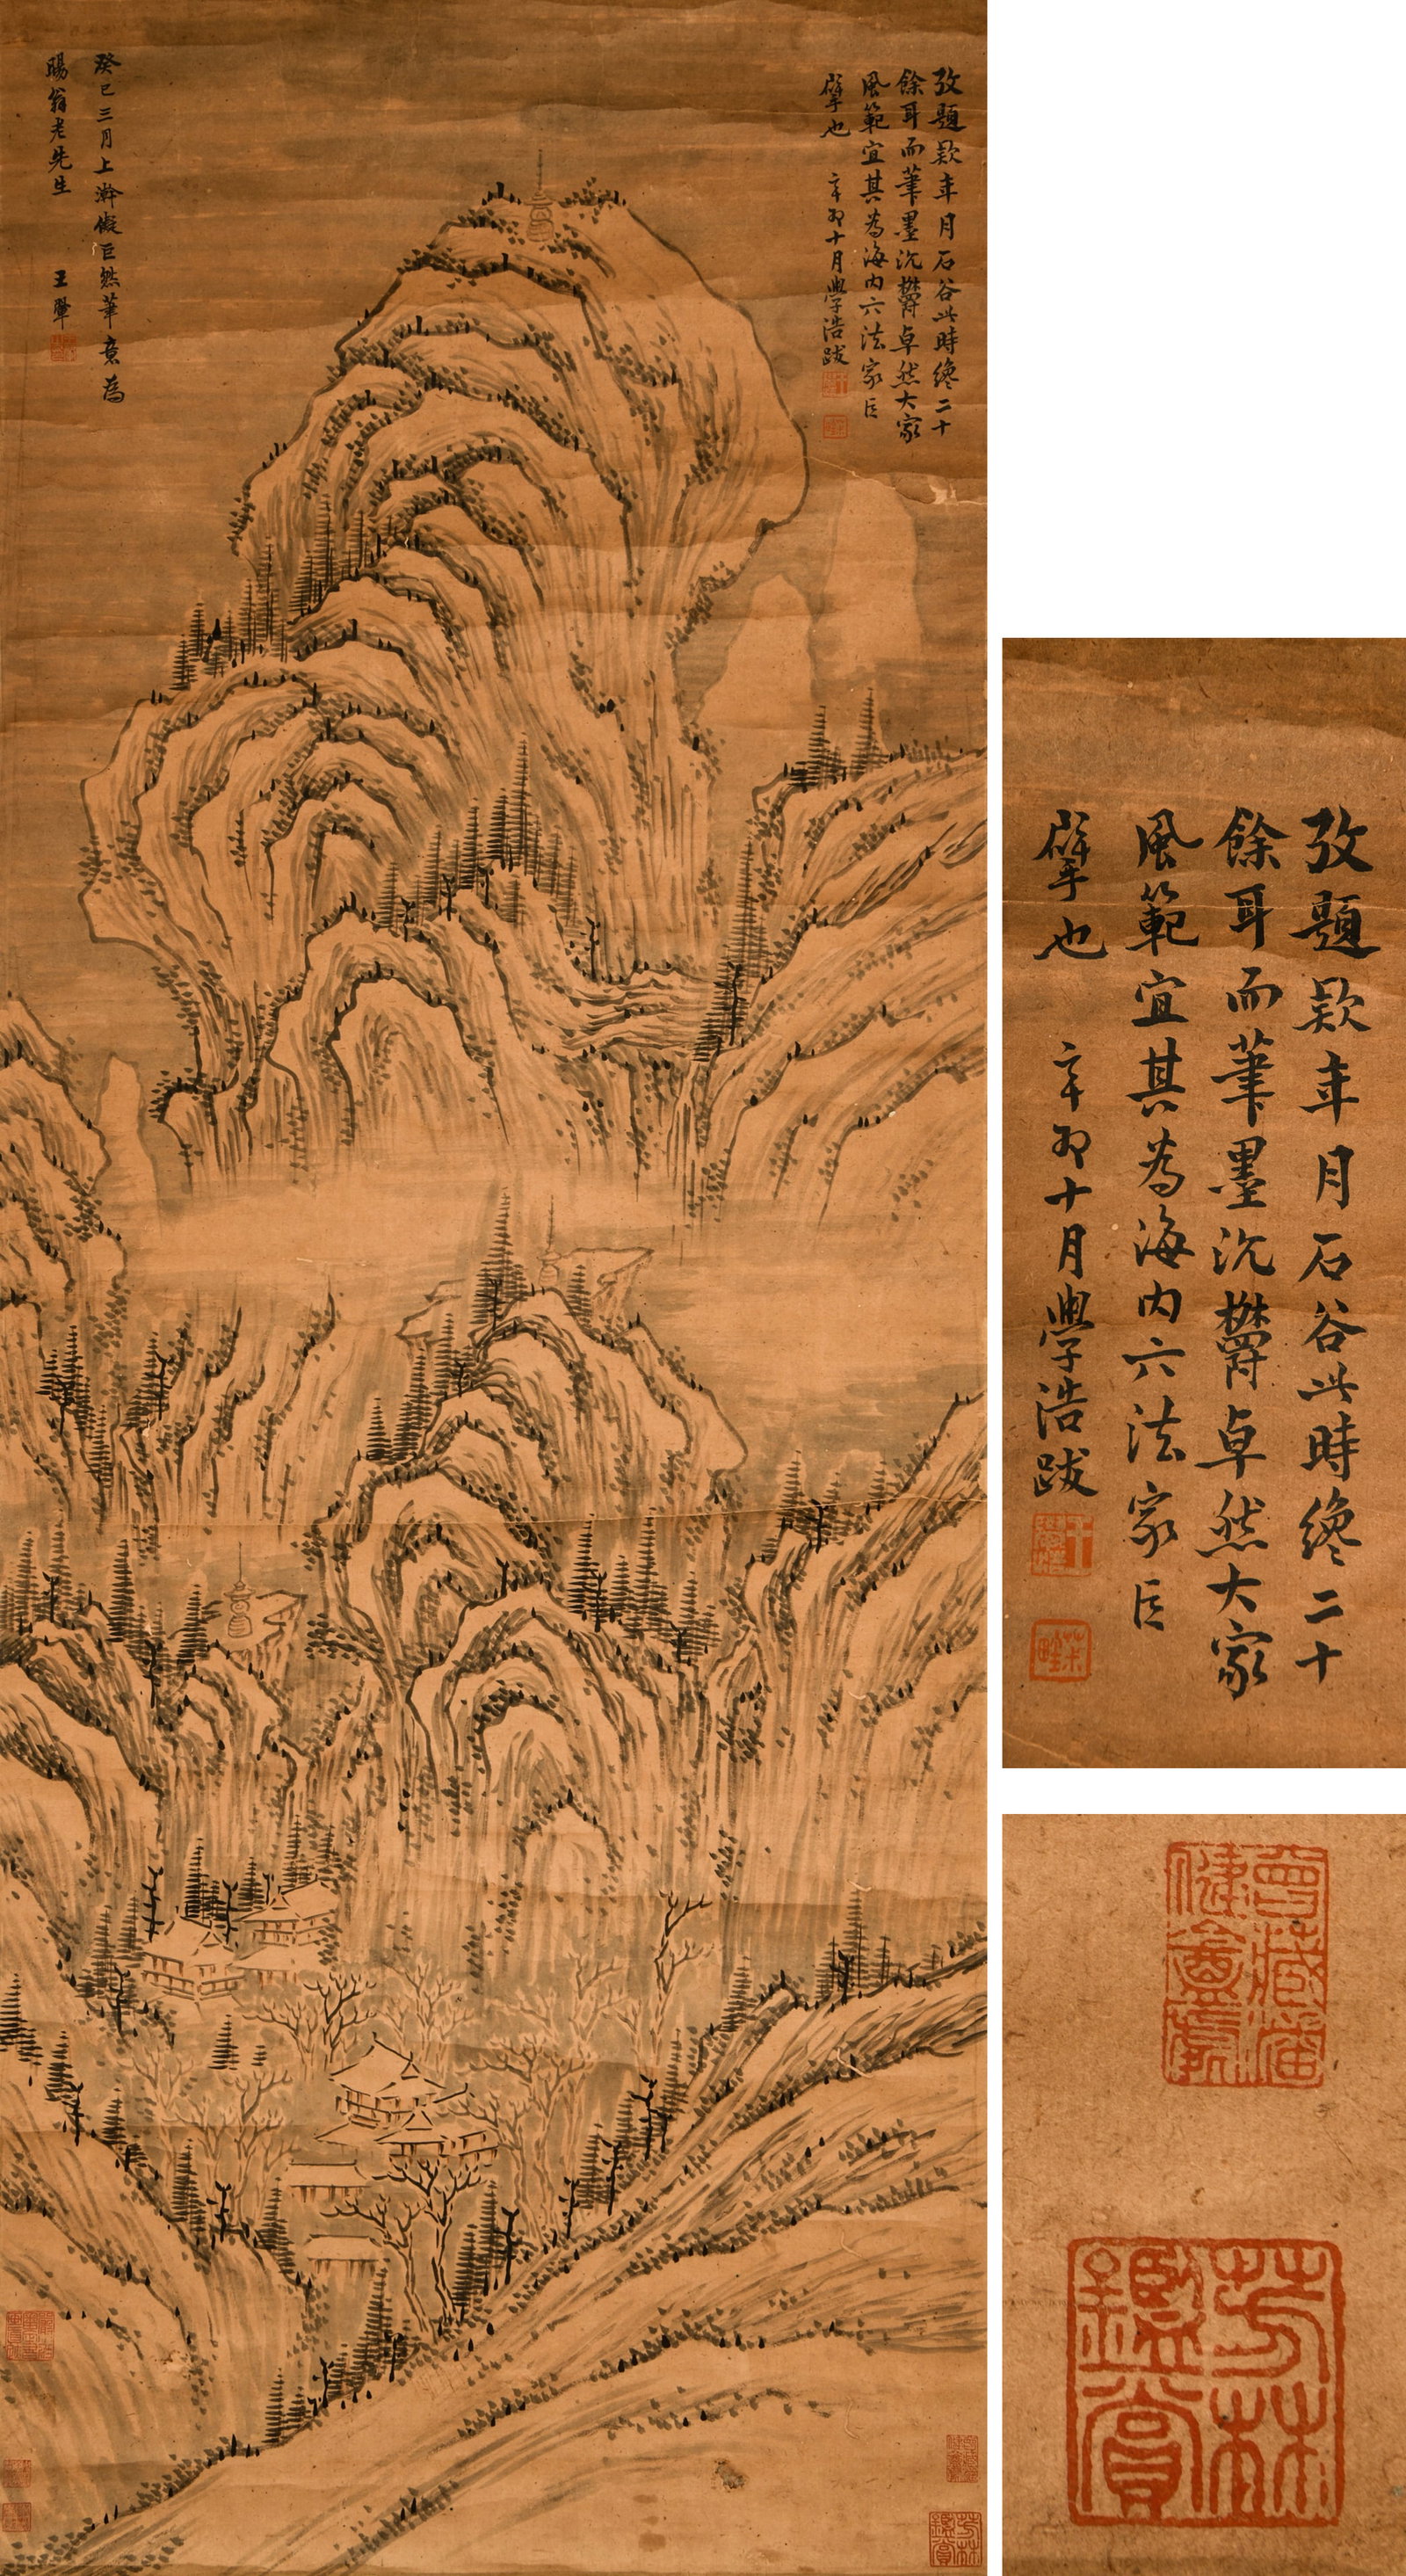 攷題款年月石谷此時纔二十
餘耳而筆墨沉鬱卓然大家
風範宜其為海内六法家巨
擘也
辛卯十月學浩跋
癸巳三月上澣儗巨然筆意為
賜翁老先生
王翬
攷題款年月石谷此時纔二十
餘耳而筆墨沉鬱卓然大家
風範宜其為海内六法家巨
擘也
辛卯十月學浩跋
曾藏潘
健盦處
芳林
鑑賞
芳林
鑑賞